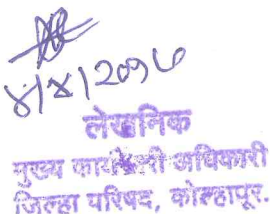 ४/४/२०१६
लेखनिक
मुख्य कार्यकारी अधिकारी
जिल्हा परिषद, कोल्हापूर.